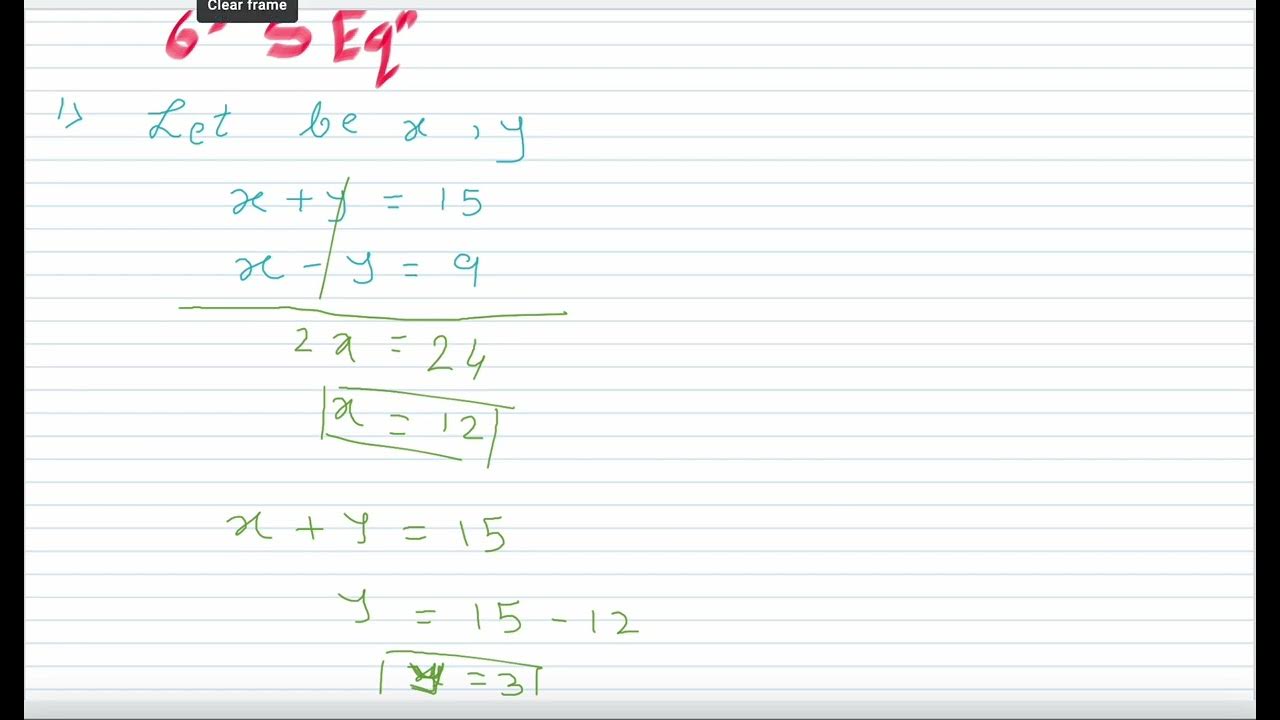 Clear frame
6. S Eqn
1) Let be x, y
x + y = 15
x - y = 9
2x = 24
x = 12
x + y = 15
y = 15 - 12
y = 3